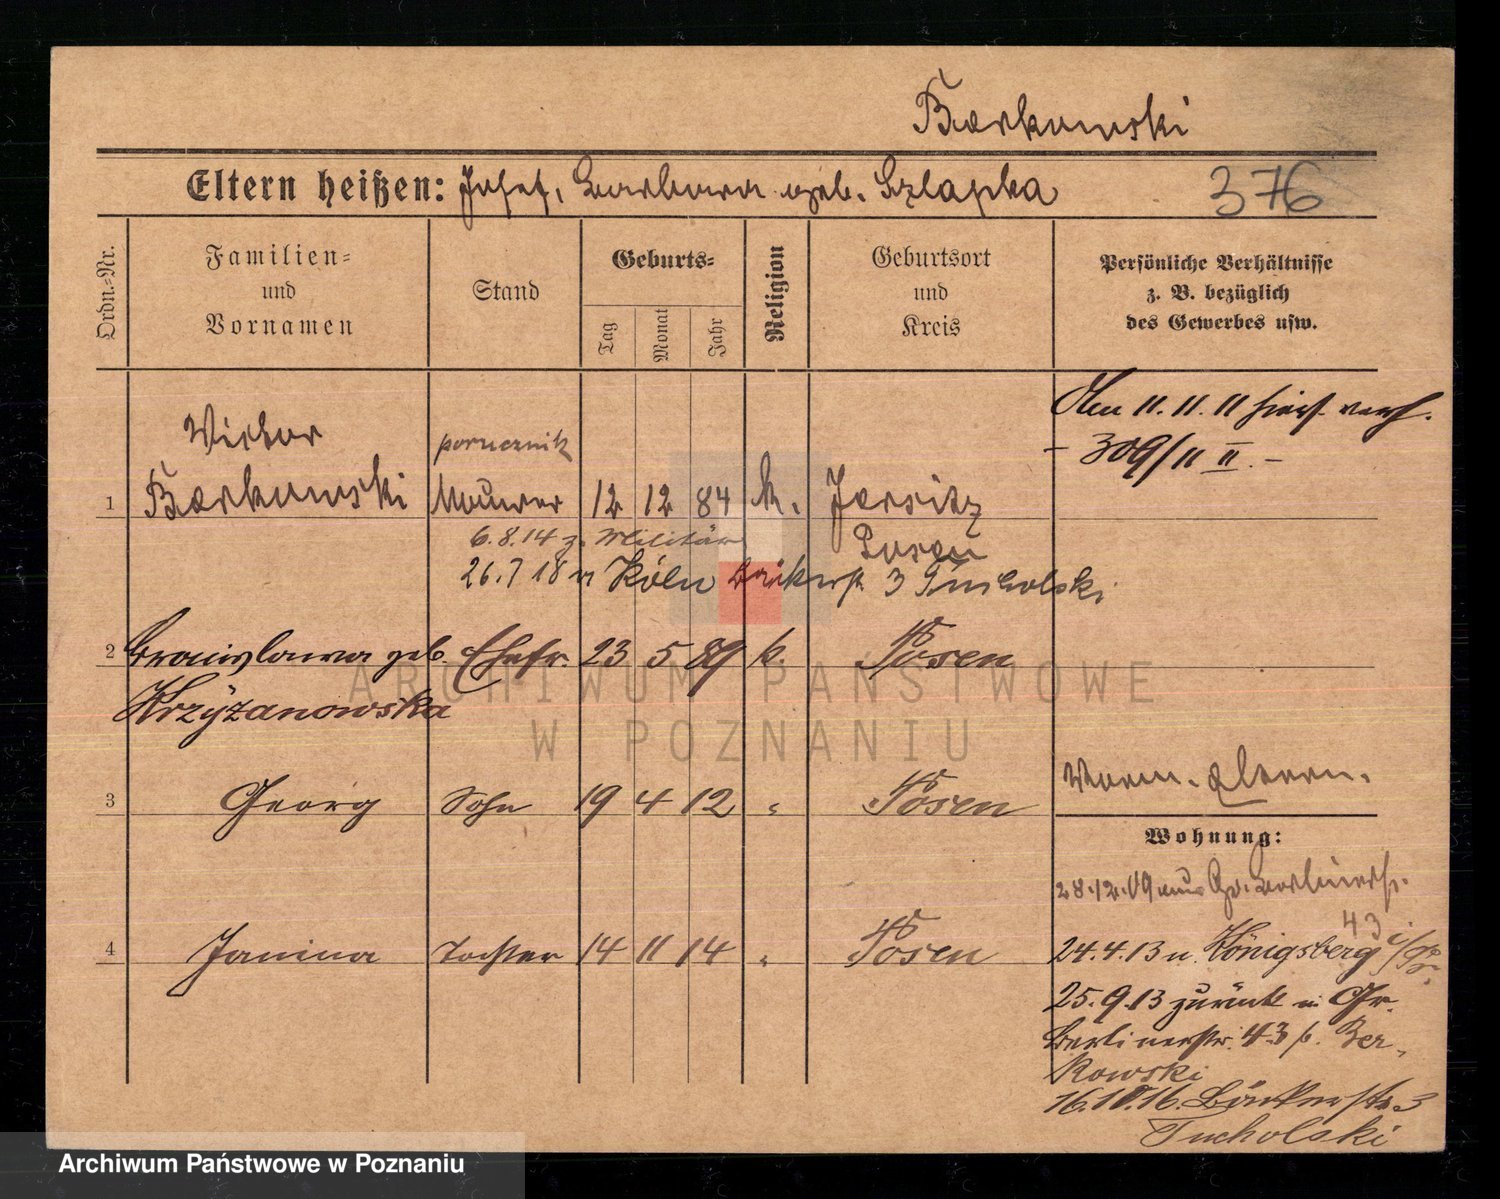 Barkowski
Eltern heißen: Josef, Barbara geb. Szlapka
376
Ordn.-Nr.
Familien- und Vornamen
Stand
Geburts-
Tag
Monat
Jahr
Religion
Geburtsort und Kreis
Persönliche Verhältnisse
z. B. bezüglich
des Gewerbes usw.
Am 11. 11. 11 hier verh.
- 309/11 II. -
Victor
porucznik
1 Barkowski Maurer 12 12 84 k. Jersitz
6.8.14 z. Militär Posen
26.7 18 n Köln Bäckerstr. 3 Tucholski
2 Bronislawa geb. Ehefr. 23 5 89 k. Posen
Krzyżanowska
Worm. Eltern.
3 Georg Sohn 19 4 12 " Posen
Wohnung:
28.12.09 aus Gr. Berlinerstr.
43
4 Janina Tochter 14 11 14 " Posen
24.4.13 n. Königsberg i/Pr.
25.9.13 zurück n Gr.
Berlinerstr. 43 b. Bar-
kowski
16.10.16. Bäckerstr. 3
Tucholski
ARCHIWUM PAŃSTWOWE
W POZNANIU
Archiwum Państwowe w Poznaniu